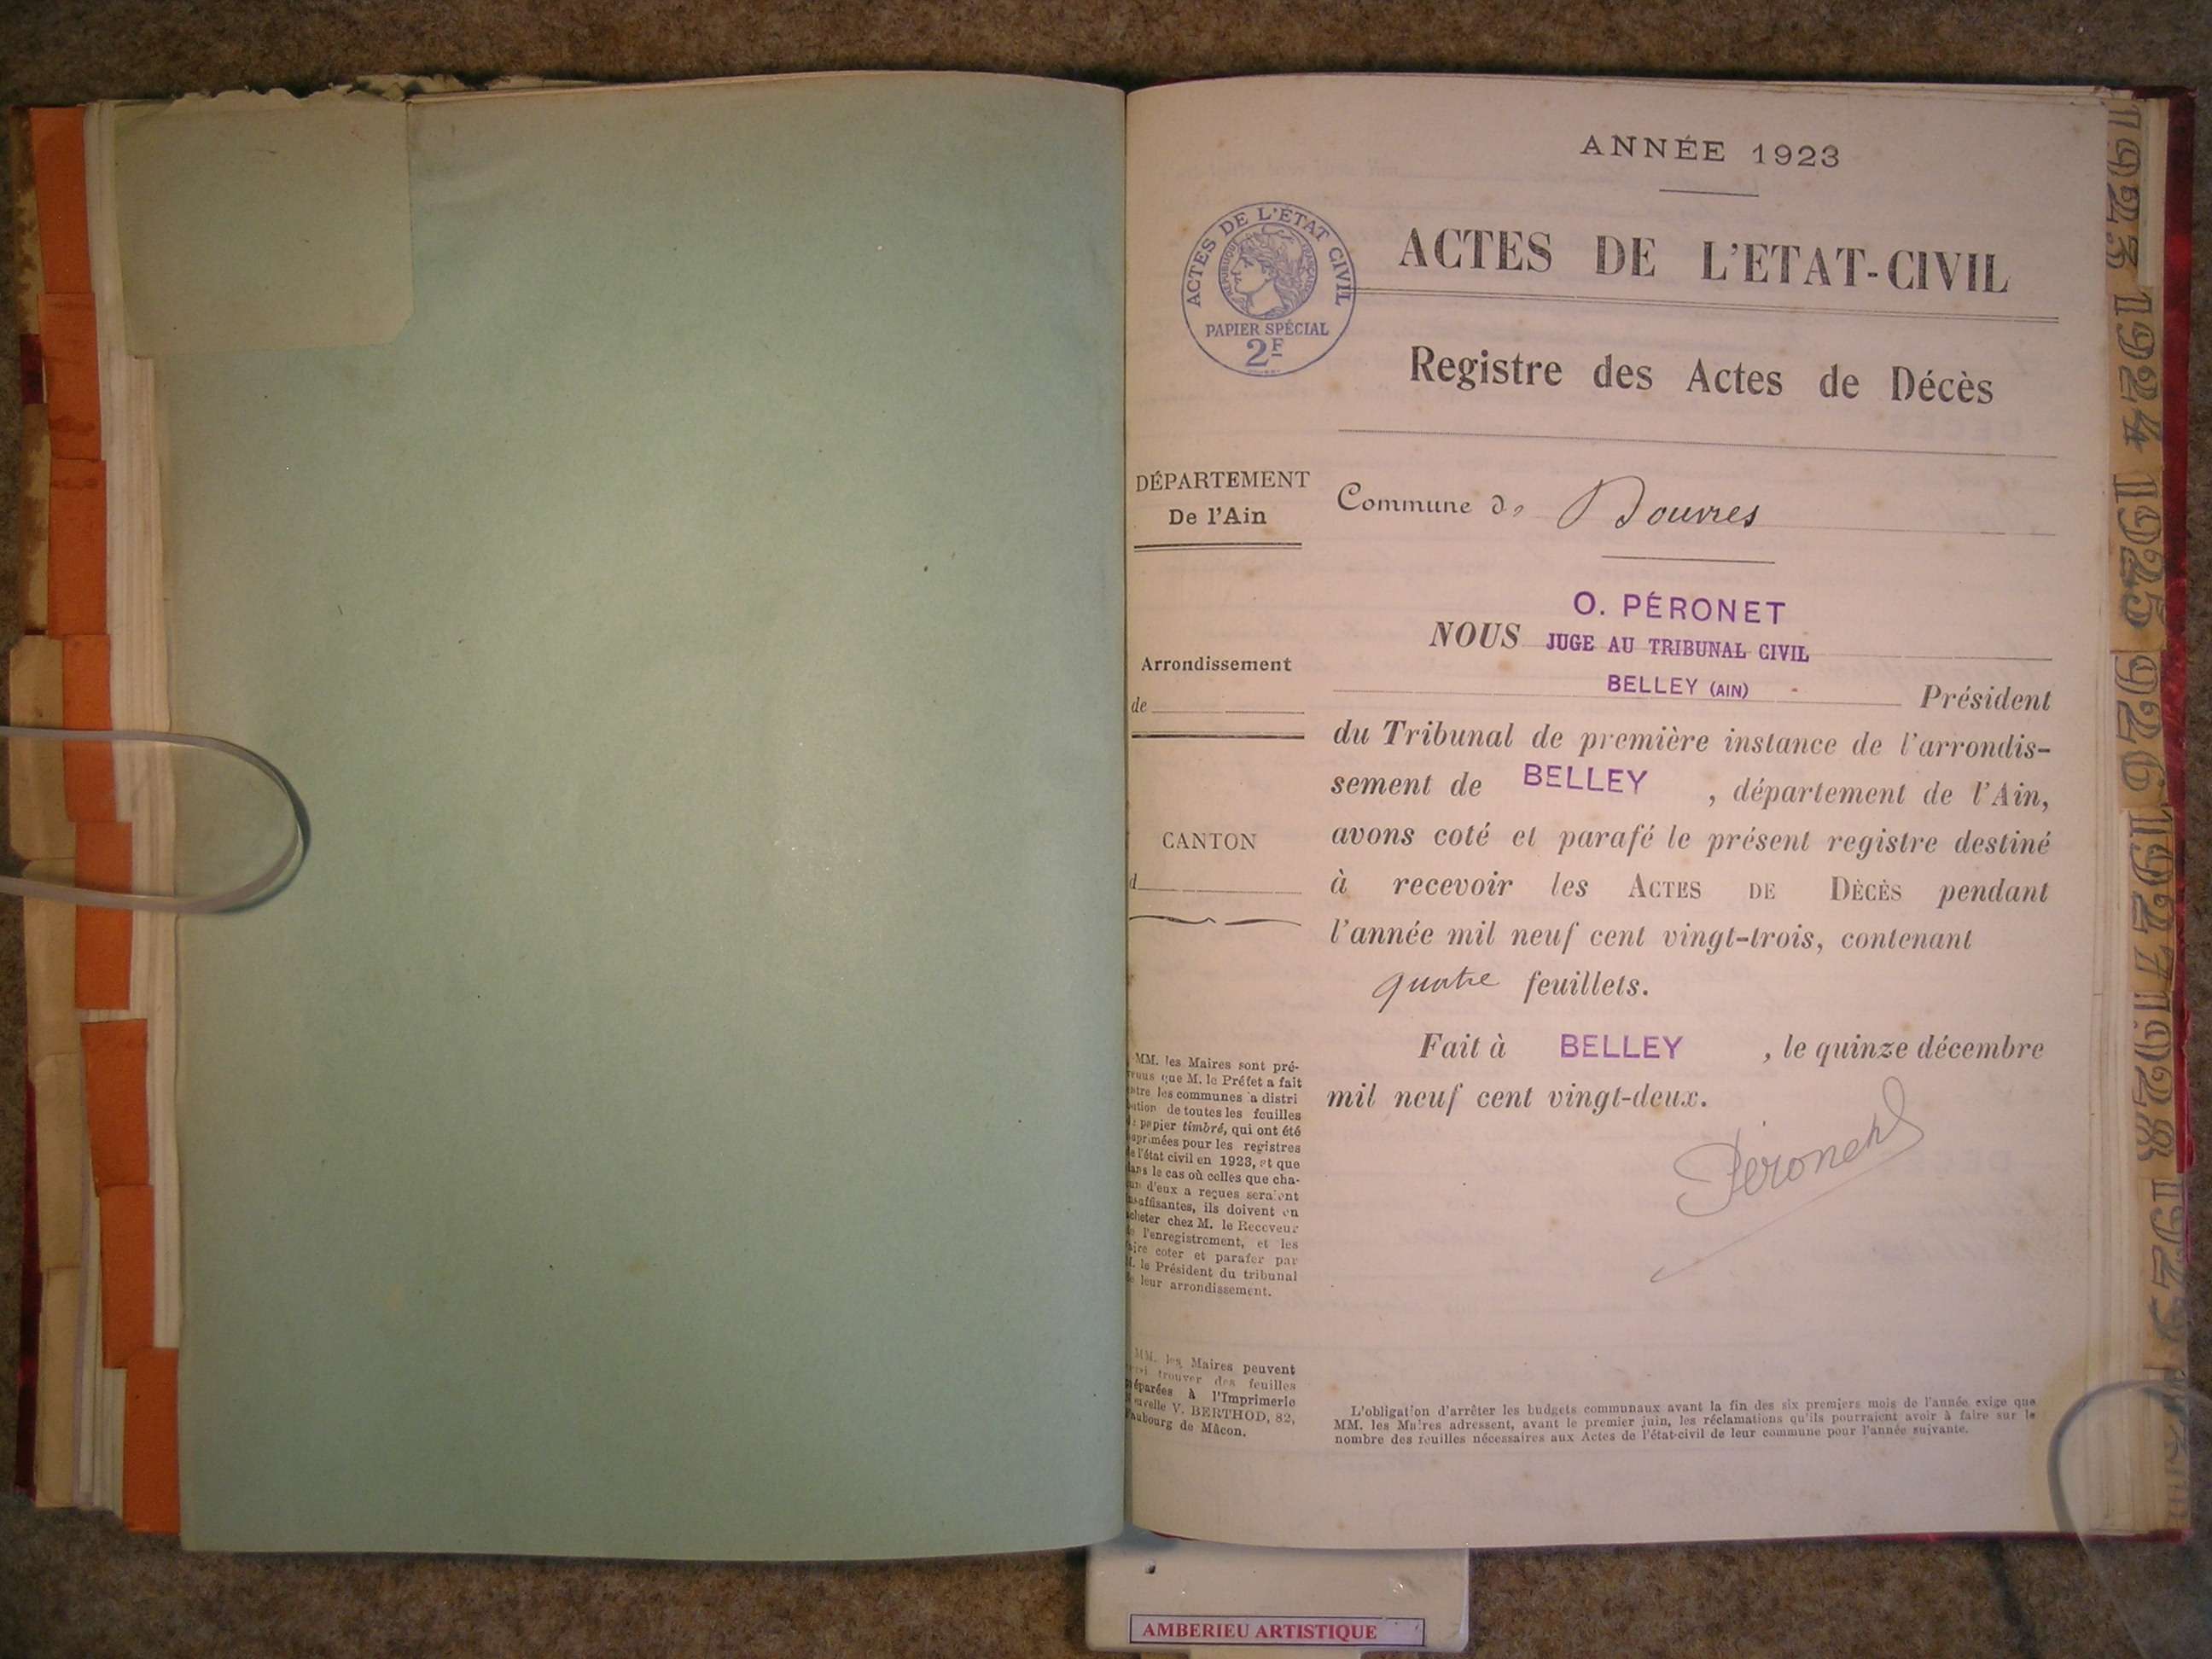 ANNÉE 1923
ACTES DE L'ÉTAT CIVIL
RÉPUBLIQUE FRANÇAISE
PAPIER SPÉCIAL
2F
ACTES DE L'ETAT-CIVIL
Registre des Actes de Décès
DÉPARTEMENT
De l'Ain
Commune de Douvres
O. PÉRONET
NOUS JUGE AU TRIBUNAL CIVIL
BELLEY (AIN)
Président
Arrondissement
de
du Tribunal de première instance de l'arrondis-
sement de BELLEY, département de l'Ain,
CANTON
d
avons coté et parafé le présent registre destiné
à recevoir les ACTES DE DÉCÈS pendant
l'année mil neuf cent vingt-trois, contenant
quatre feuillets.
Fait à BELLEY, le quinze décembre
mil neuf cent vingt-deux.
Péronet
MM. les Maires sont pré-
que M. le Préfet a fait
les communes a distri
de toutes les feuilles
papier timbré, qui ont été
pour les registres
l'état civil en 1923, et que
le cas où celles que cha-
d'eux a reçues seraient
ils doivent en
chez M. le Receveur
l'enregistrement, et les
coter et parafer par
le Président du tribunal
leur arrondissement.
MM. les Maires peuvent
trouver des feuilles
à l'Imprimerie
V. BERTHOD, 82,
de Mâcon.
L'obligation d'arrêter les budgets communaux avant la fin des six premiers mois de l'année exige que
MM. les Maires adressent, avant le premier juin, les réclamations qu'ils pourraient avoir à faire sur le
nombre des feuilles nécessaires aux Actes de l'état-civil de leur commune pour l'année suivante.
1923 1924 1925 926 1927 1928
AMBERIEU ARTISTIQUE